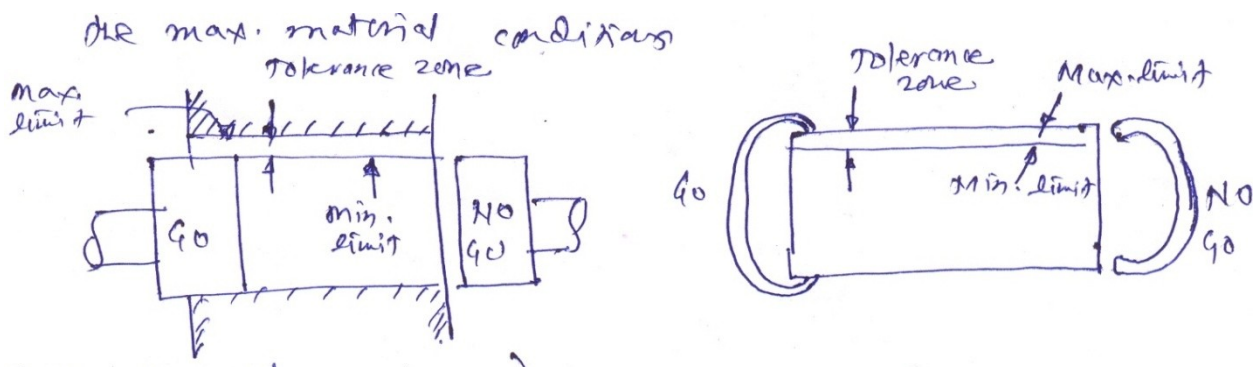 the max. material conditions
Tolerance zone
max.
limit
GO
min.
limit
NO
GO
Tolerance
zone
Max. limit
Min. limit
GO
NO
GO